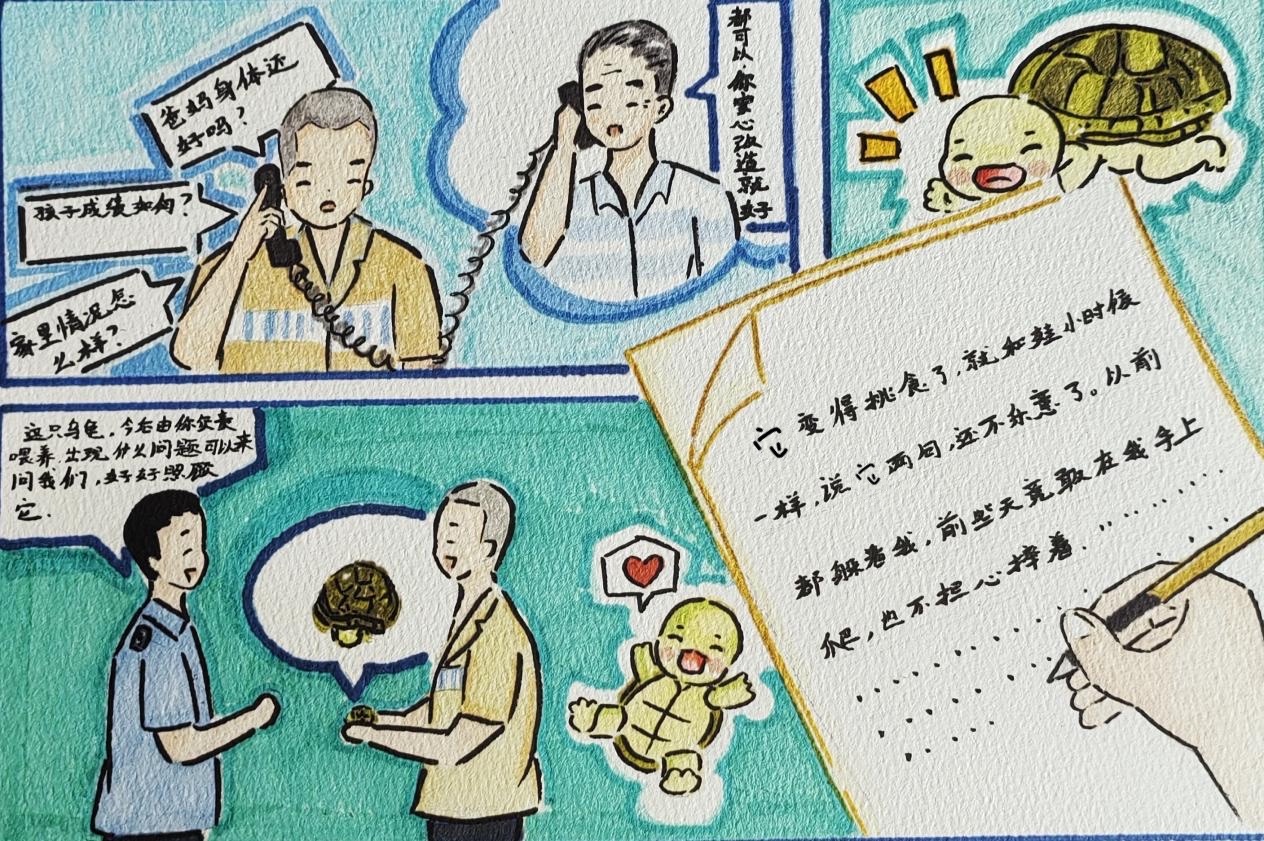 爸妈身体还
好吗？
孩子成绩如何？
家里情况怎
么样？
都可以，你安心改造就好
这只乌龟，今后由你负责
喂养，出现什么问题可以来
问我们，好好照顾
它．
它变得挑食了，就和娃小时候
一样，说它两句，还不乐意了。以前
都躲着我，前些天竟敢在我手上
爬，也不担心摔着．"………